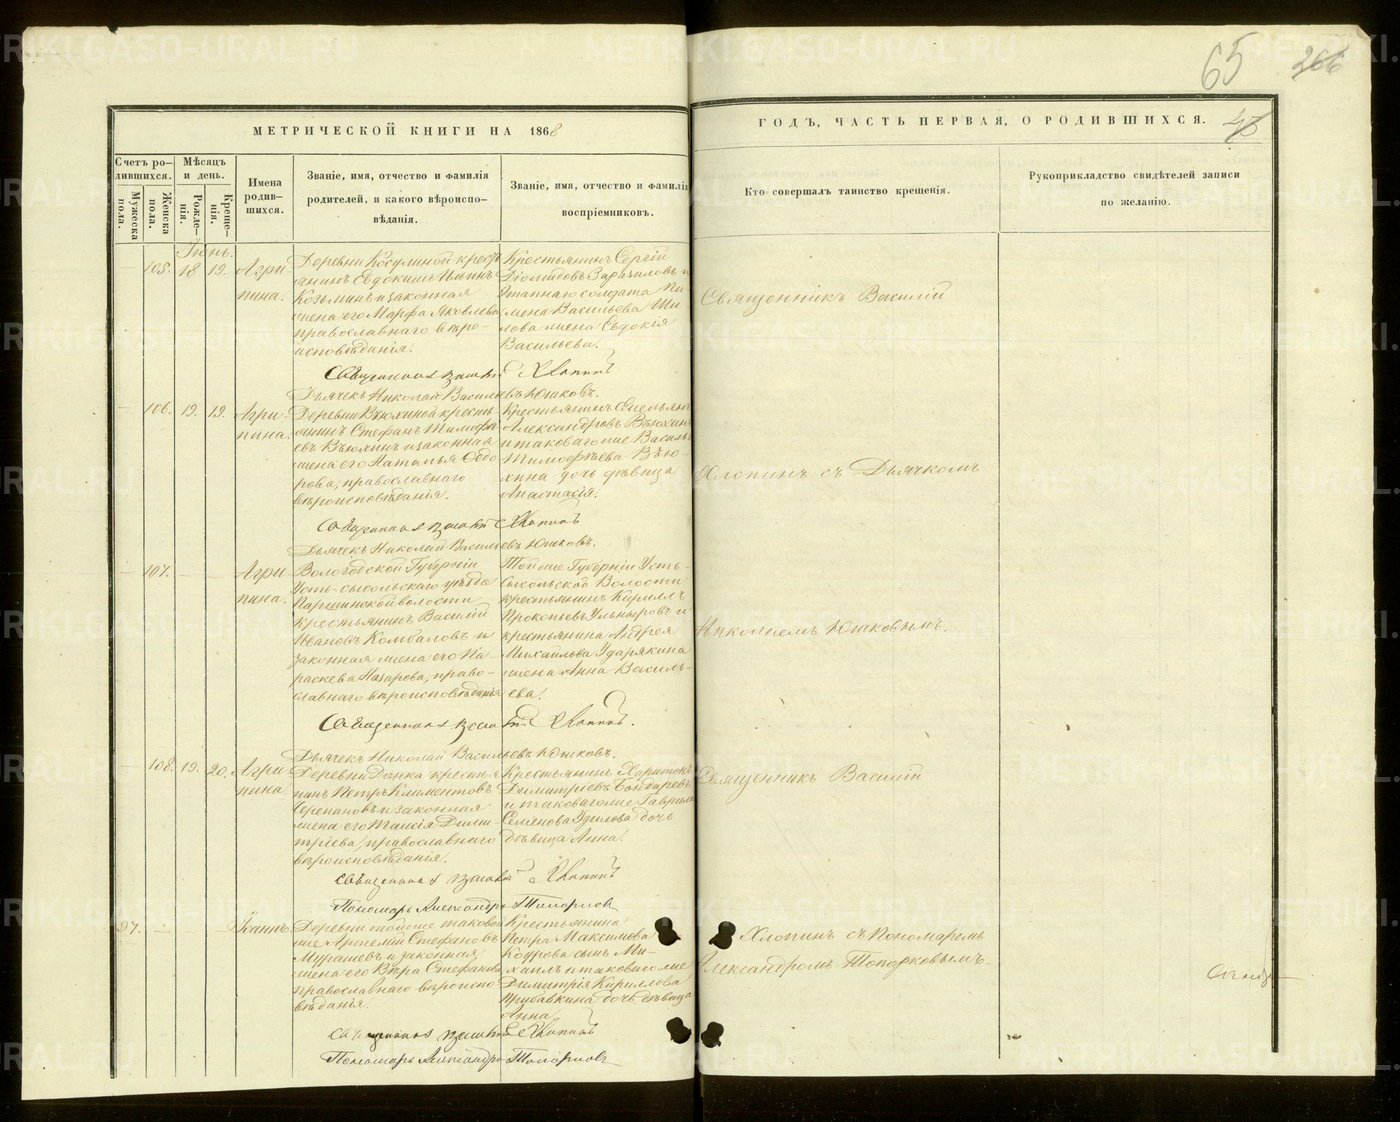 65
266
МЕТРИЧЕСКОЙ КНИГИ НА 1868
ГОДЪ, ЧАСТЬ ПЕРВАЯ, О РОДИВШИХСЯ.
48
Счетъ ро-
дившихся.
Мужеска
пола.
Женска
пола.
Мѣсяцъ
и день.
Рожде-
нія.
Креще-
нія.
Имена
родив-
шихся.
Званіе, имя, отчество и фамилія
родителей, и какого вѣроиспо-
вѣданія.
Званіе, имя, отчество и фамилія
воспріемниковъ.
Кто совершалъ таинство крещенія.
Рукоприкладство свидѣтелей записи
по желанію.
Іюнь.
105. 18 19. Агри-
пина.
Деревни Косулиной крест
янинъ Евдокимъ Ильинъ
Козьминъ и законная
жена его Марфа Яковлева,
православнаго вѣро-
исповѣданія.
Крестьянинъ Сергій
Діомидовъ и
этапнаго солдата Пи
мена Васильева Ши
лова жена Евдокія
Васильева.
Священникъ Василій Хлопинъ
Дьячекъ Николай Васильевъ Юшковъ.
106. 19. 19. Агри-
пина.
Деревни Вьюхиной кресть
янинъ Стефанъ Тимофе
евъ Вьюхинъ и законная
жена его Наталья Ѳедо
рова, православнаго
вѣроисповѣданія.
Крестьянинъ Емельянъ
Александровъ Вьюхинъ
и таковагоже Василья
Тимофѣева Вью-
хина дочь дѣвица
Анастасія.
Священникъ Василій Хлопинъ
Дьячекъ Николай Васильевъ Юшковъ.
107. Агри
пина.
Вологодской Губерніи
Усть-сысольскаго уѣзда
волости
крестьянинъ Василій
Ивановъ Комбаловъ и
законная жена его Па-
раскева Назарова, право-
славнаго вѣроисповѣданія
Тойже Губерніи Усть-
сысольской Волости
крестьянинъ Кириллъ
Прокопьевъ и
крестьянина Андрея
Михайлова Ударякина
жена Анна Василь-
ева.
Священникъ Василій Хлопинъ.
Дьячекъ Николай Васильевъ Юшковъ.
108. 19. 20. Агри
пина.
Деревни крестья
нинъ Петръ Климентовъ
Черепановъ и законная
жена его Таисія Дими-
тріева, православнаго
вѣроисповѣданія.
Крестьянинъ Харитонъ
Димитріевъ Бондаревъ
и таковагоже Гаврила
Семенова дочь
дѣвица Анна.
Священникъ Василій Хлопинъ
Пономарь Александръ Топорковъ
97. Іоаннъ
Деревни тойже таковой
же Артемій Стефановъ
Мурашевъ и законная
жена его Вѣра Стефанова
православнаго вѣроиспо
вѣданія
Крестьянина
Петра Максимова
сынъ Ми-
хаилъ и таковагоже
Димитрія Кириллова
Прибавкина дочь дѣвица
Анна.
Священникъ Василій Хлопинъ
Пономарь Александръ Топорковъ
Священникъ Василій
Хлопинъ съ Дьячкомъ
Николаемъ Юшковымъ.
Священникъ Василій
Хлопинъ съ Пономаремъ
Александромъ Топорковымъ.
METRIKI.GASO-URAL.RU